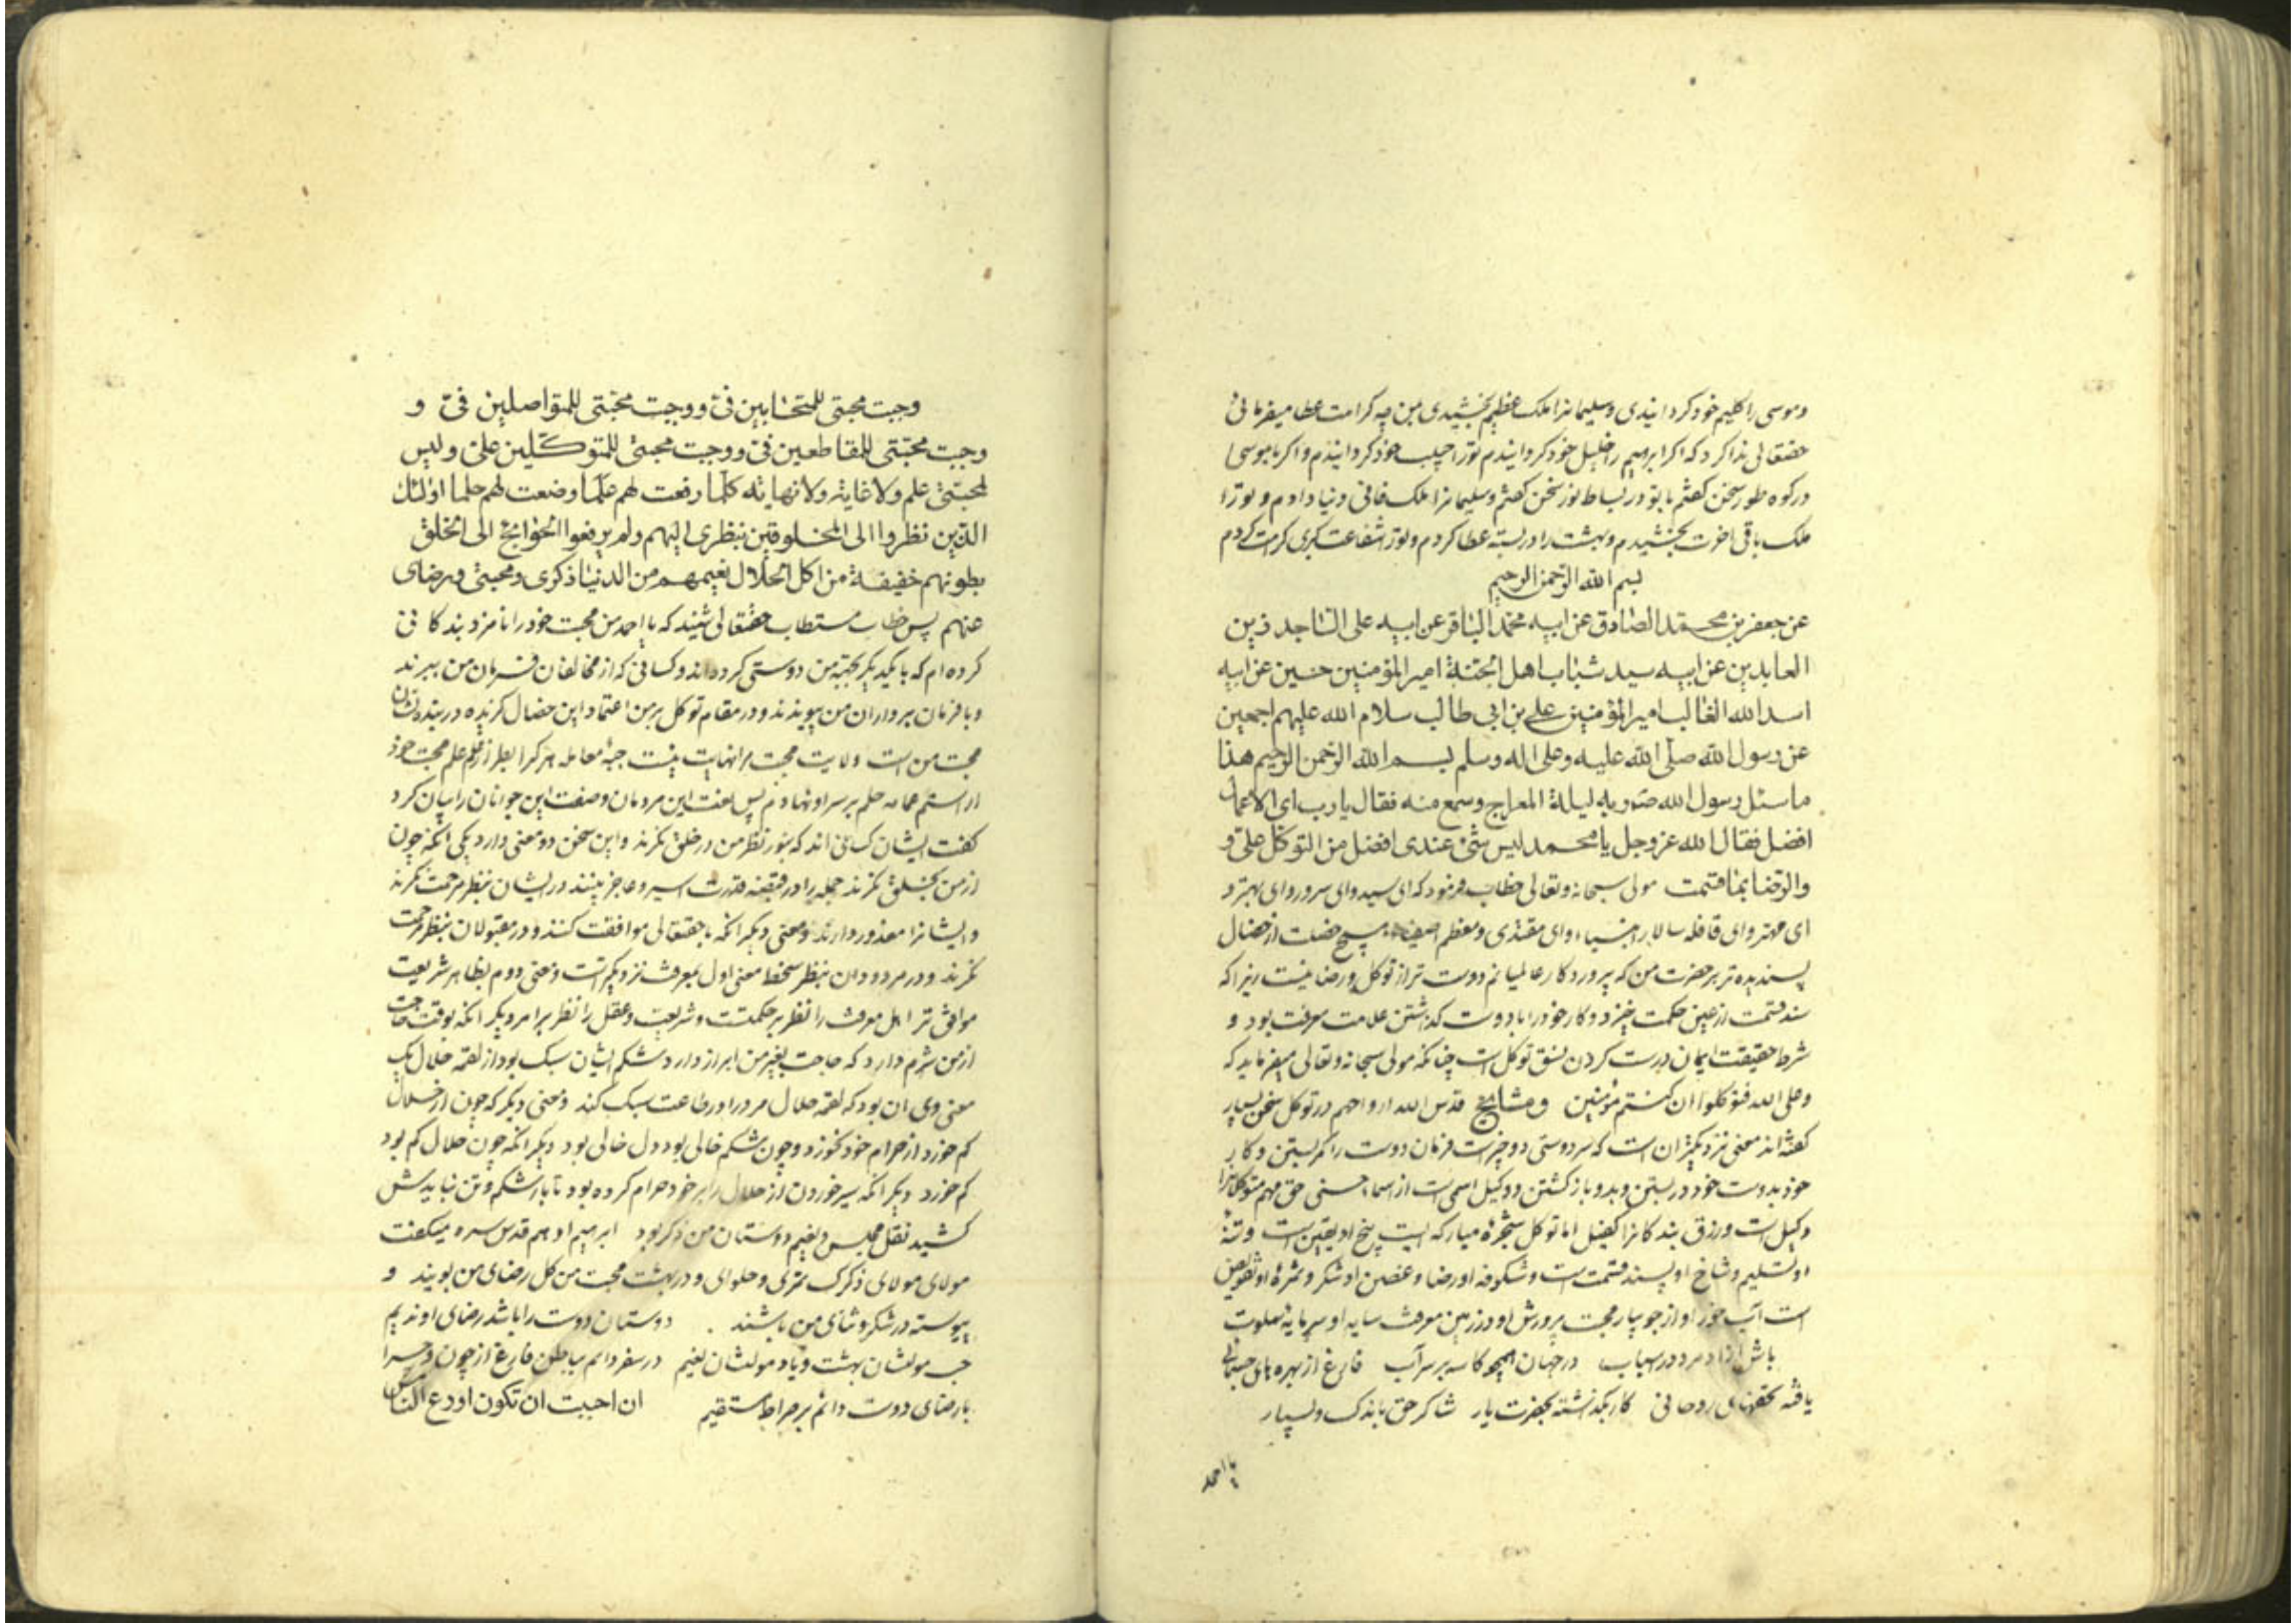 وموسی را کلیم خود کردانیدی وسلیمانرا ملک عظیم بخشیدی بمن چه کرامت عطا میفرمائی
حقتعالی ندا کرد که اکر ابرهیم را خلیل خود کردانیدم تورا حبیب خود کردانیدم واکر با موسی
در کوه طور سخن کفتم با تو در بساط نور سخن کفتم وسلیمانرا ملک فانی دنیا دادم و تورا
ملک باقی اخرت بخشیدم وبهشت را دربسته عطا کردم وتورا شفاعت کبری کرامت کردم
بسم الله الرحمن الرحیم
عن جعفر بن محمد الصادق عن ابیه محمد الباقر عن ابیه علی الساجد زین
العابدین عن ابیه سید شباب اهل الجنة امیر المؤمنین حسین عن ابیه
اسد الله الغالب امیر المؤمنین علی بن ابی طالب سلام الله علیهم اجمعین
عن رسول الله صلی الله علیه وعلی اله وسلم بسم الله الرحمن الرحیم هذا
ما سئل رسول الله ربه لیلة المعراج وسمع منه فقال یا رب ای الاعمال
افضل فقال الله عز وجل یا محمد لیس شئ عندی افضل من التوکل علی و
والرضا بما قسمت مولی سبحانه وتعالی خطاب فرمود که ای سید وای سرور وای بهتر و
ای مهتر وای قافله سالار انبیاء وای مقتدی ومعظم هیچ خصلت از خصال
پسندیده تر بر حضرت من که پروردکار عالمیانم دوست تر از توکل ورضا نیست زیرا که
قسمت از عین حکمت خیزد وکار خود را با دوست کذاشتن علامت معرفت بود و
شرط حقیقت ایمان درست کردن توکل است چنانکه مولی سبحانه وتعالی میفرماید که
وعلی الله فتوکلوا ان کنتم مؤمنین ومشایخ قدس الله ارواحهم در توکل سخن بسیار
کفته اند معنی نزدیکتر ان است که سر دوستی دو چیز است فرمان دوست را کمر بستن وکار
خود بدوست خود در بستن وبدو باز کشتن ووکیل اسمی است از اسماء حسنی حق مهم متوکلانرا
وکیل است ورزق بندکانرا کفیل اما توکل شجرۀ مبارکه ایست بیخ او یقین است وتنۀ
او تسلیم وشاخ او پسند قسمت است وشکوفه او رضا وغصن او شکر وثمرۀ او تفویض
است آب خور او از جویبار محبت پرورش او در زمین معرفت سایه او سرمایۀ سلوت
باش ازاد مرد در اسباب در جهان همچو کاسه بر سر آب فارغ از بهره های جسمانی
یافته تحفهای روحانی کار بکذاشته بحضرت یار شاکر حق باندک وبسیار
یا احمد
وجبت محبتی للمتحابین فیّ ووجبت محبتی للمتواصلین فیّ و
وجبت محبتی للمقاطعین فیّ ووجبت محبتی للمتوکلین علیّ ولیس
لمحبتی علم ولا غایة ولا نهایة کلما رفعت لهم علما وضعت لهم حلما اولئک
الذین نظروا الی المخلوقین بنظری الیهم ولم یرفعوا الحوایج الی الخلق
بطونهم خفیفة من اکل الحلال نعیمهم من الدنیا ذکری ومحبتی ورضای
عنهم پس خطاب مستطاب حقتعالی شنید که یا احمد من محبت خود را نامزد بندکانی
کرده ام که با یکدیکر بجهة من دوستی کرده اند وکسانی که از مخالفان فرمان من ببرند
وبا فرمان برداران من پیوندند ودر مقام توکل بر من اعتماد این خصال کزیده در بنده نشان
محبت من است ولایت محبت مرا نهایت نیست معامله هر کرا علم محبت خود
عمامه حلم بر سر او نهادم پس نعت این مردمان وصفت این جوانان را بیان کرد
کفت ایشان کسانی اند که بنور نظر من در خلق نکرند واین سخن دو معنی دارد یکی انکه چون
از من بخلق نکرند جمله را در قبضه قدرت اسیر وعاجز بینند در ایشان بنظر مرحمت نکرند
وایشانرا معذور دارند ومعنی دیکر انکه با حقتعالی موافقت کنند ودر مقبولان بنظر رحمت
نکرند ودر مردودان بنظر سخط معنی اول بمعرفت نزدیکتر است ومعنی دوم بظاهر شریعت
موافق تر اهل معرفت را نظر بر حکمتست وشریعت وعقل را نظر بر امر دیکر انکه بوقت حاجت
از من شرم دارد که حاجت بغیر من ابراز دارد شکم ایشان سبک بود از لقمه حلال یک
معنی وی ان بود که لقمه حلال مرد را در طاعت سبک کند ومعنی دیکر که چون از حلال
کم خورد از حرام خود نخورد وچون شکم خالی بود دل خالی بود دیکر انکه چون حلال کم بود
کم خورد دیکر انکه سیر خوردن از حلال را بر خود حرام کرده بود تا بار شکم وتن نبایدش
کشید نقل مجلس ونعیم دوستان من ذکر بود ابرهیم ادهم قدس سره میکفت
مولای مولای ذکرک وحلوای ودر بهشت محبت من کل رضای من بویند و
پیوسته در شکر وثنای من باشند دوستان دوست را باشد رضای او ندیم
حب مولشان بهشت ویاد مولشان نعیم در سفر دائم بباطن فارغ از چون وچرا
با رضای دوست دائم بر صراط مستقیم ان احببت ان تکون اودع الناس